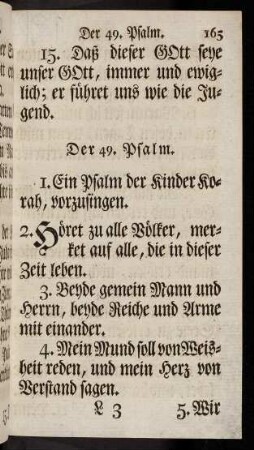 Der 49. Psalm. 165
15. Daß dieser GOtt seye
unser GOtt, immer und ewig-
lich; er führet uns wie die Ju-
gend.
Der 49. Psalm.
1. Ein Psalm der Kinder Ko-
rah, vorzusingen.
2. Höret zu alle Völker, mer-
ket auf alle, die in dieser
Zeit leben.
3. Beyde gemein Mann und
Herrn, beyde Reiche und Arme
mit einander.
4. Mein Mund soll von Weis-
heit reden, und mein Herz von
Verstand sagen.
L 3 5. Wir